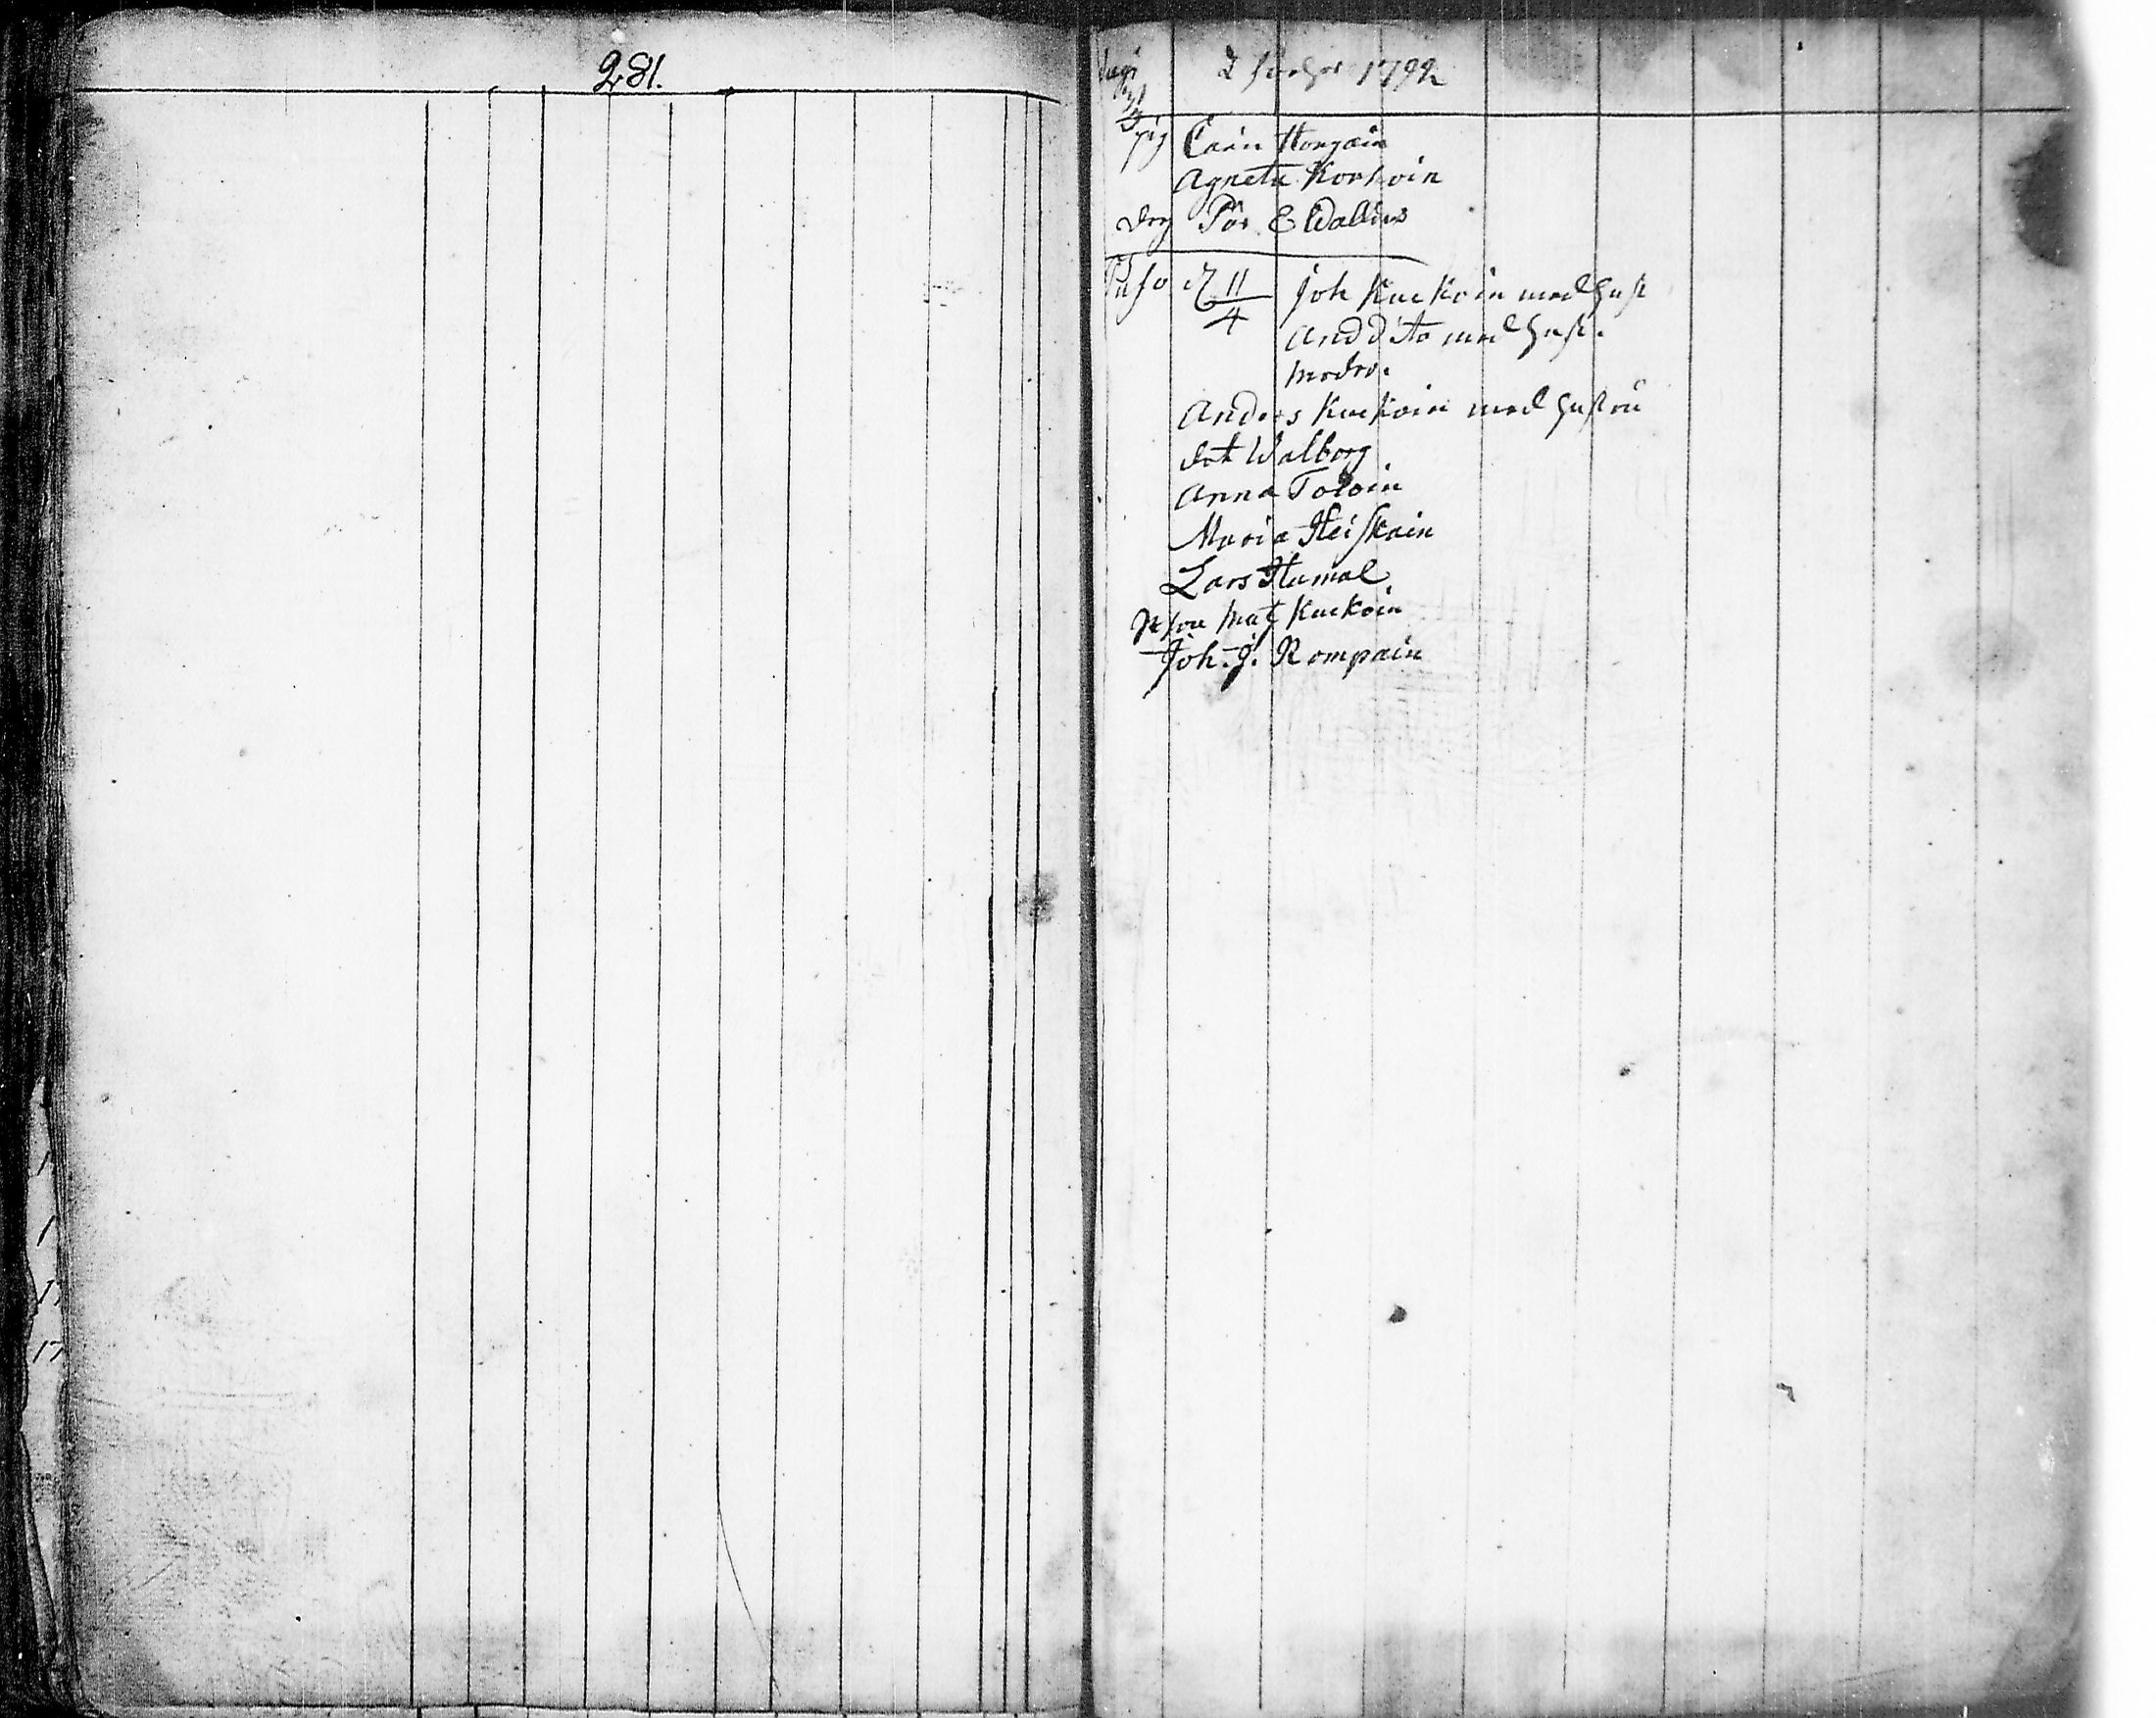 281.
1792
pig Carin Hongain
Agneta Korhoin
drg Pår. E Wallius
d 11/4 Joh Kuckoin med hust
And Dito med hust.
modro.
Anders Kuckoin med hustru
dot Walborg
Anna Toloin
Maria Heiskain
Lars Humal
Mat Kuckoin
Joh. J. Rompain
17